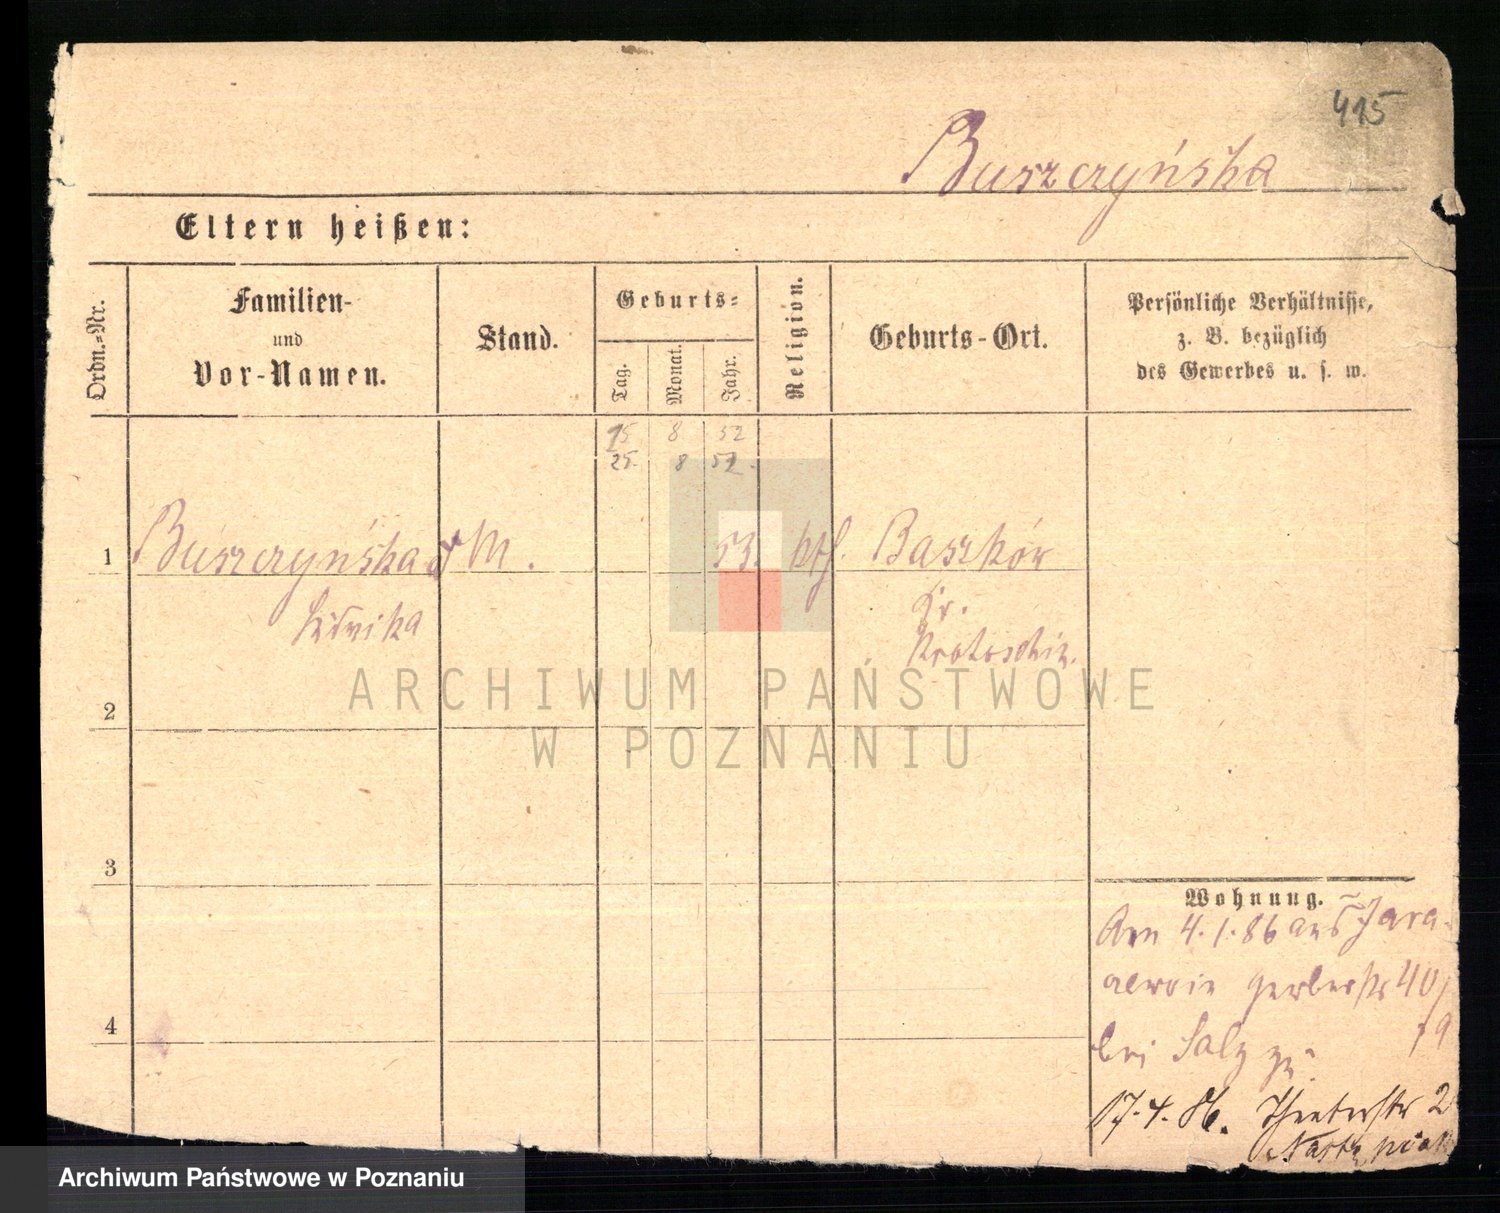 415
Buszczyńska
Eltern heißen:
Ordn.-Nr.
Familien-
und
Vor-Namen.
Stand.
Geburts-
Tag.
Monat.
Jahr.
Religion.
Geburts-Ort.
Persönliche Verhältnisse,
z. B. bezüglich
des Gewerbes u. s. w.
15 8 52
25. 8 52.
1 Buszczyńska M. 53. kth. Baszków
Ludvika Kr.
Krotoschin.
2
3
4
Wohnung.
Am 4.1.86 aus Jara-
Gerberstr 40/
bei Salz zu. 79
17.4.86. Theaterstr 2
ARCHIWUM PAŃSTWOWE
W POZNANIU
Archiwum Państwowe w Poznaniu